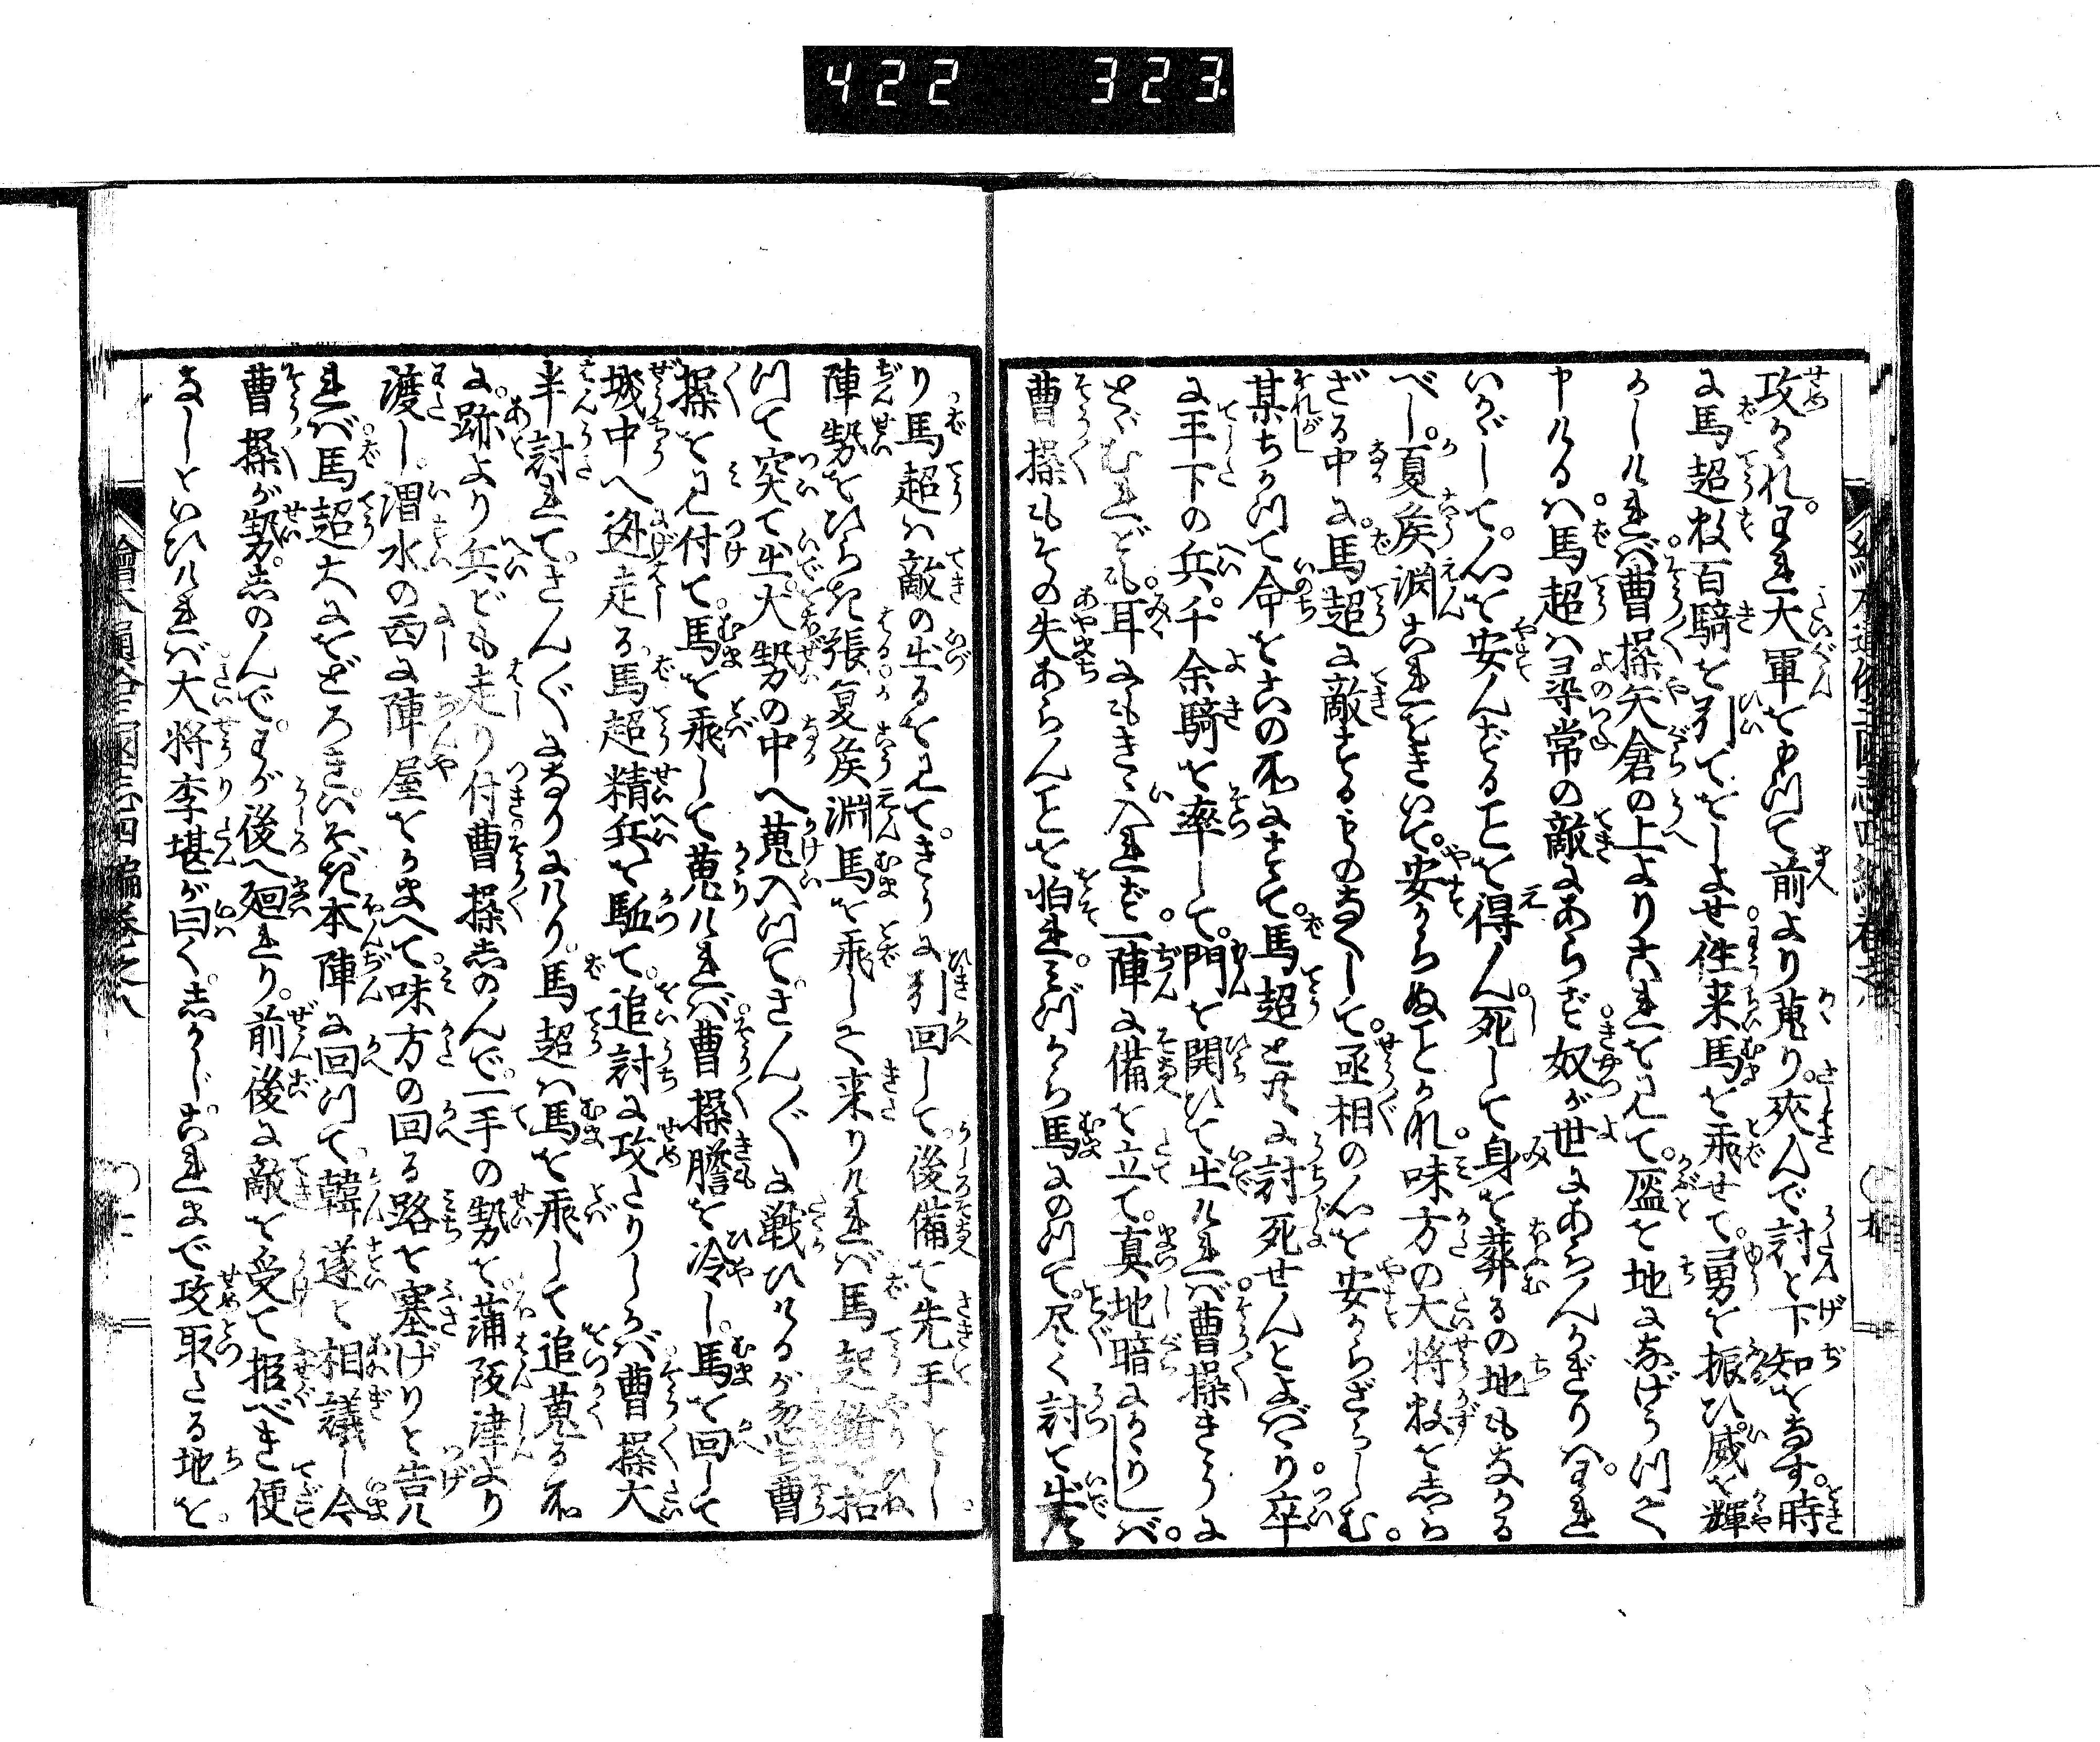 422 323
攻られ。われ大軍をもつて前より蒐り。夾んで討と下知をなす。時
に馬超数百騎を引てをしよせ。往来馬を飛せて。勇を振ひ威を輝
かしければ。曹操矢倉の上よりこれを見て。盔を地になげうつて
申けるハ。馬超ハ尋常の敵にあらず。奴が世にあらんかぎりハ。われ
いかがして。心を安んずることを得ん。死して身を葬るの地もなかる
べし。夏矦渊これをきいて。安からぬことかれ。味方の大将数をしら
ざる中に。馬超に敵するものなくして。丞相の心を安からざらしむ。
某ちかつて命をこの所にすて。馬超とともに討死せんとよばゝり。卒
に手下の兵。千余騎を率して。門を開ひて出ければ。曹操きうに
とゞむれども。耳にもきゝ入れず。一陣に備を立て。真地暗にかゝりしバ。
曹操もその失あらんことを怕れ。みづから馬にのつて。尽く討て出け
り馬超ハ敵の出るを見て。きうに引回して。後備を先手とし。
陣勢をひらき。張夏矦淵馬を飛して来りければ。馬超鎗を拈
つて突て出。大勢の中へ蒐入つて。さんゞに戦ひけるが忽ち曹
操を見付て。馬を飛して蒐ければ。曹操膽を冷し。馬を回して
城中へ迯走る。馬超精兵を駈て。追討に攻たりしかバ。曹操大
半討れて。さんゞになりにけり。馬超ハ馬を飛して追蒐る所
に。跡より兵ども走り付。曹操しのんで。一手の勢を。蒲阪津より
渡し。渭水の西に陣屋をかまへて。味方の回る路を塞げりと告け
れバ。馬超大にをどろき。いそぎ本陣に回つて。韓遂と相議し。今
曹操が勢。しのんで。わが後へ廻れり。前後に敵を受て拒べき便
なしといひければ。大将李堪が曰く。しかじ。これまで攻取たる地を。
繪本通俗三國志四編巻之八